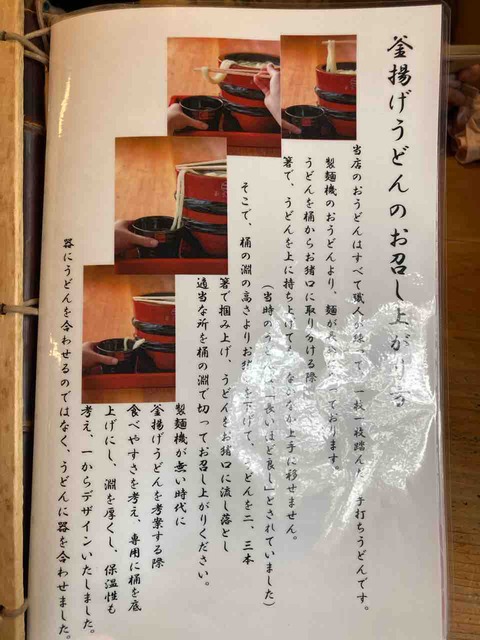 釜揚げうどんのお召し上がり方
当店のおうどんはすべて職人が練って、一枚一枚踏んだ手打ちうどんです。
製麺機のおうどんより、麺が長くなっております。
うどんを桶からお猪口に取り分ける際に
箸で、うどんを上に持ち上げても、なかなか上手に移せません。
(当時のうどんは「長いほど良し」とされていました)
そこで、桶の淵の高さよりお猪口を下げて、うどんを二、三本
箸で掴み上げ、うどんをお猪口に流し落とし
適当な所を桶の淵で切ってお召し上がりください。
製麺機が無い時代に
釜揚げうどんを考案する際
食べやすさを考え、専用に桶を底
上げにし、淵を厚くし、保温性も
考え、一からデザインいたしました。
器にうどんを合わせるのではなく、うどんに器を合わせました。